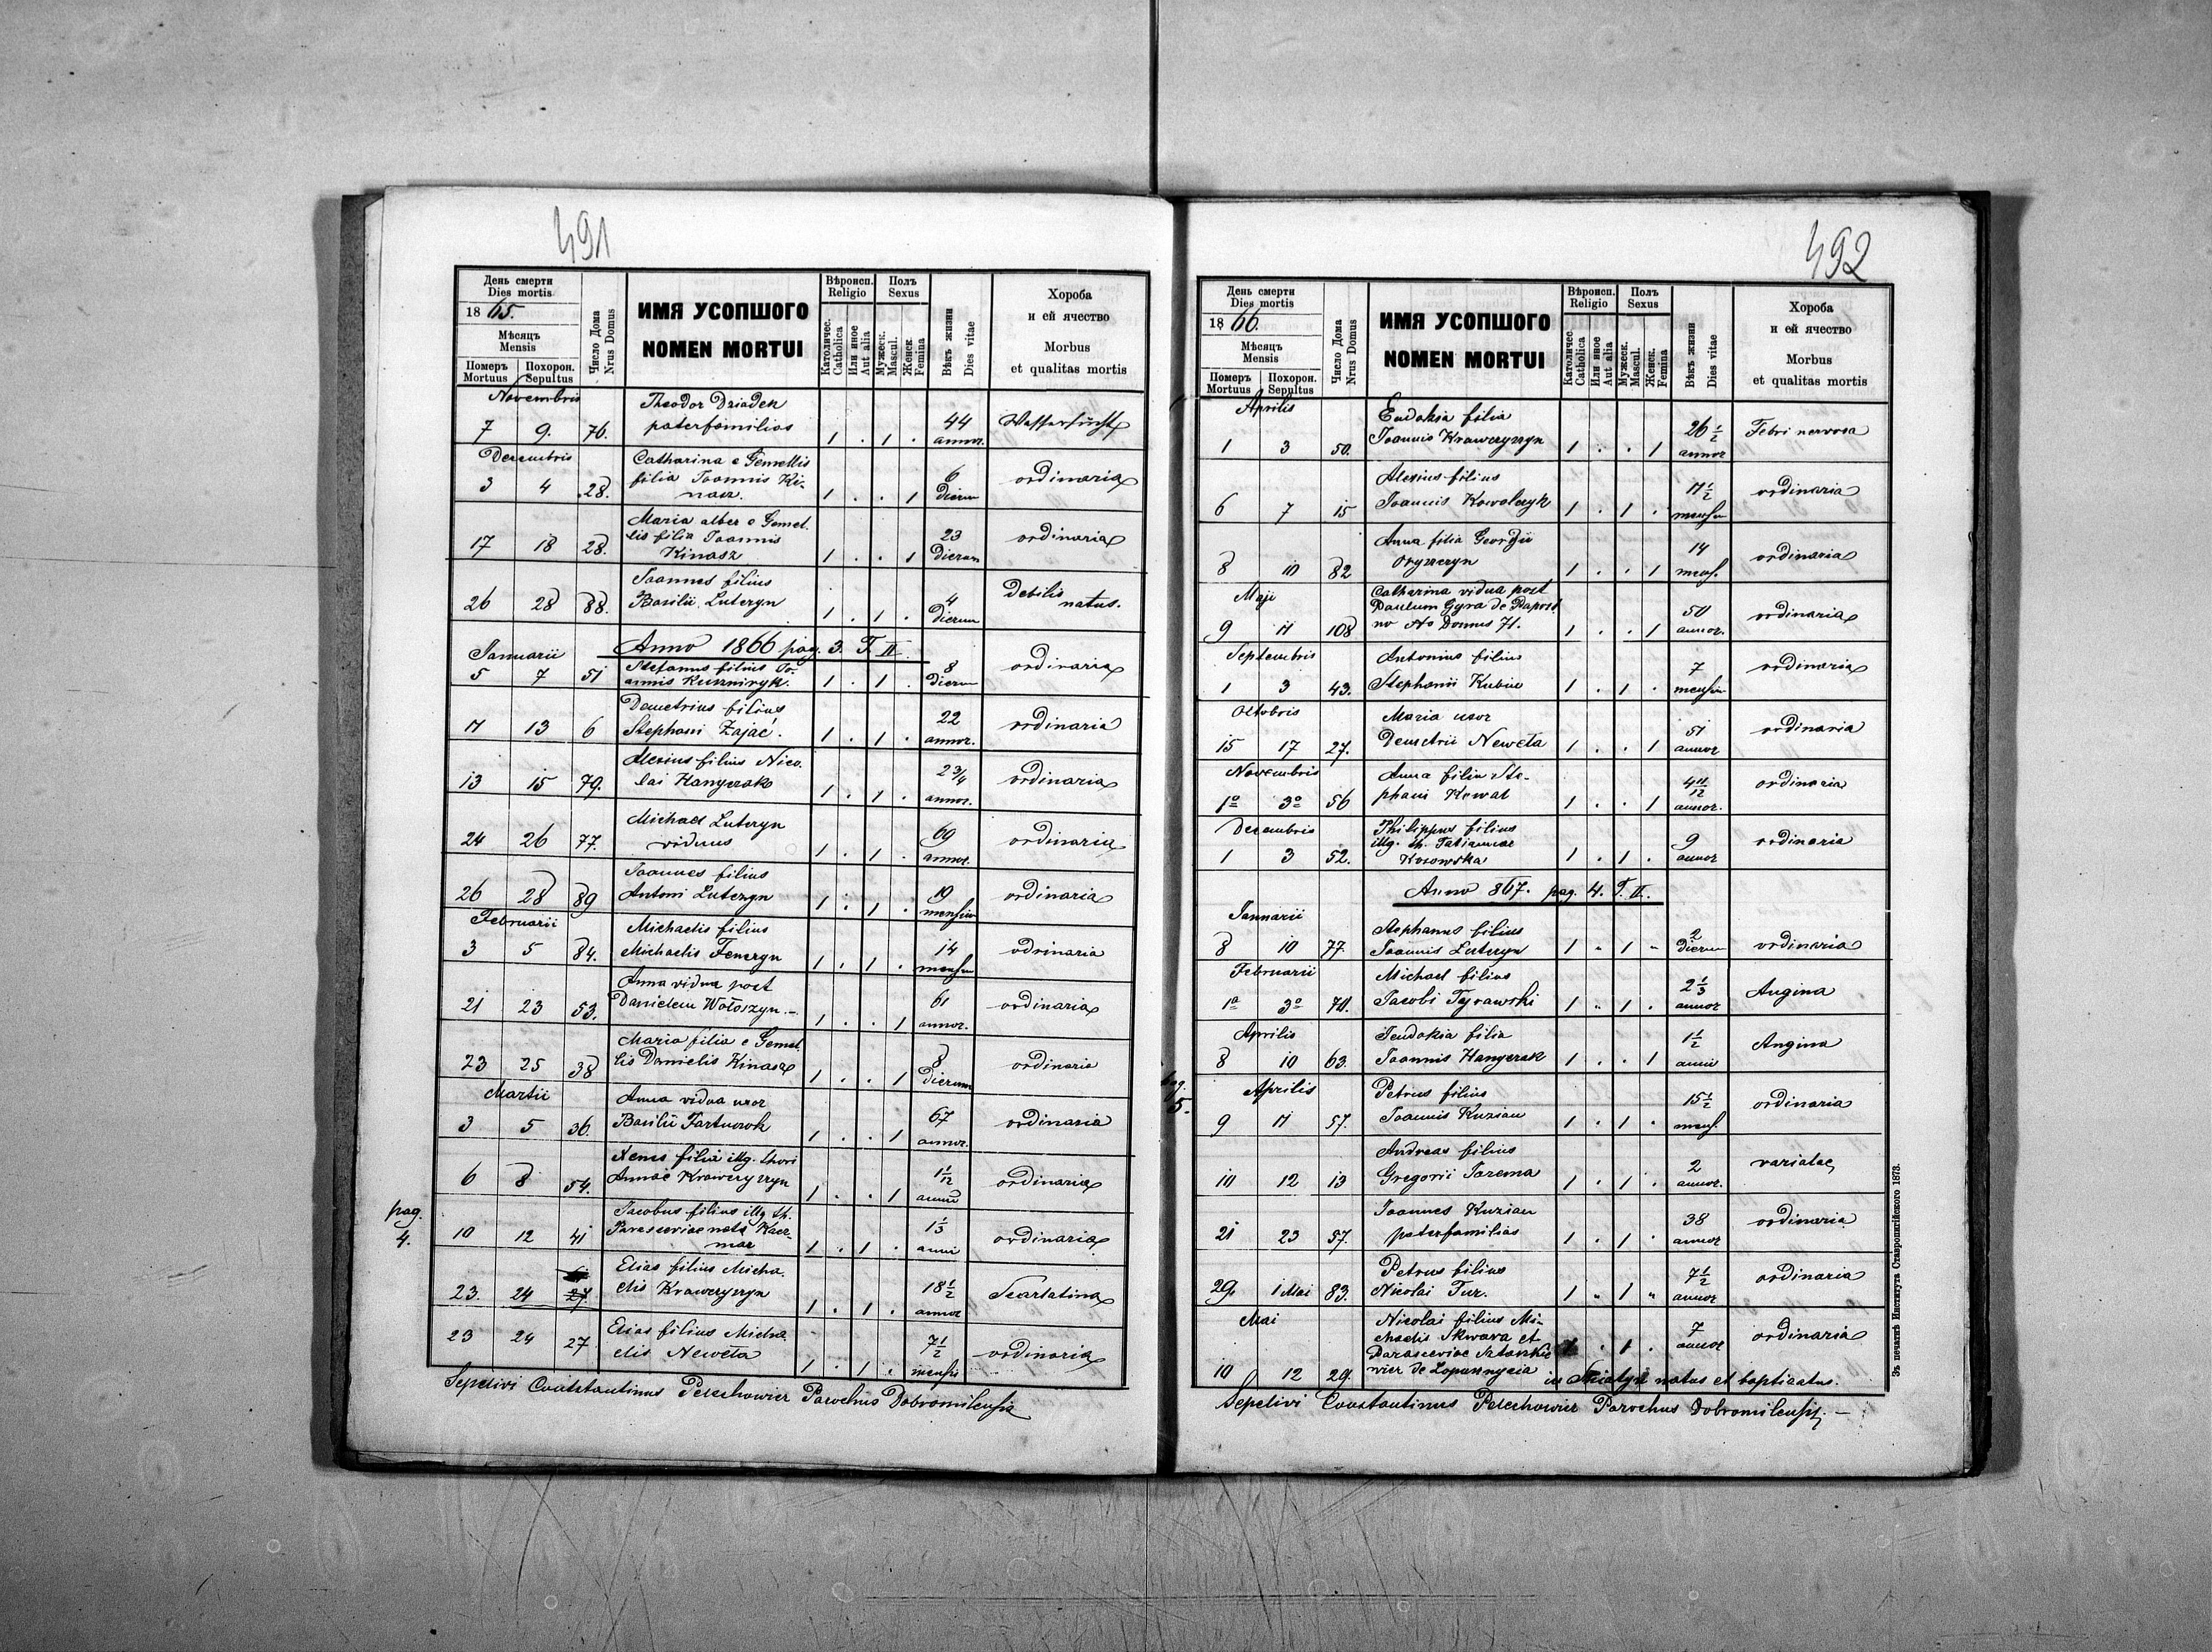 491
День смерти
Dies mortis
1865.
Мѣсяцъ
Mensis
Померъ Похорон.
Mortuus Sepultus
Число Дома
Nrus Domus
ИМЯ УСОПШОГО
NOMEN MORTUI
Вѣроисп.
Religio
Католичес.
Catholica
Или иное
Aut alia
Полъ
Sexus
Мужеск.
Mascul.
Женск.
Femina
Вѣкъ жизни
Dies vitae
Хороба
и ей ячество
Morbus
et qualitas mortis
Novembris
7 9. 76. Theodor Dziadek
paterfamilias 1 . 1 . 44
annor. Wassersucht
Decembris
3 4 28. Catharina e Gemellis
filia Joannis Ki-
nasz. 1 . . 1 6
Dierum ordinaria
17 18 28. Maria alber e Gemel.
lis filia Joannis
Kinasz 1 . . 1 23
Dierum ordinaria
26 28 88. Joannes filius
Basilii Luteryn 1 . 1 . 4
Dierum Debilis
natus.
Anno 1866 pag. 3. T. II
Januarii
5 7 51 Stefanus filius Jo-
annis Kuszniryk. 1 . 1 . 8
Dierum ordinaria
11 13 6 Demetrius filius
Stephani Zając. 1 . 1 . 22
annor. ordinaria
13 15 79. Alexius filius Nico-
lai Hanyczak 1 . 1 . 2 3/4
annor. ordinaria
24 26 77. Michael Luteryn
viduus 1 . 1 . 69
annor. ordinaria
26 28 89 Joannes filius
Antoni Luteryn 1 . 1 . 19
mensium ordinaria
Februarii
3 5 84. Michaelis filius
Michaelis Fenczyn 1 . 1 . 14
mensium odrinaria
21 23 53. Anna vidua post
Danielem Wołoszyn.- 1 . . 1 61
annor. ordinaria
23 25 38 Maria filia e Gemel
lis Danielis Kinasz 1 . . 1 8
Dierum ordinaria
Martii
3 5 36. Anna vidua uxor
Basilii Fartuszok 1 . . 1 67
annor. ordinaria
6 8 54. Xenes filia illg. thori
Annae Krawczyszyn 1 . . 1 1 1/12
anni ordinaria
pag.
4.
10 12 41 Jacobus filius illg th.
Parasceviae nata Kacz-
mar 1 . 1 . 1 1/3
anni ordinaria
23. 24 27. Elias filius Micha.
elis Krawczyszyn 1 . 1 . 18 1/2
annor Scarlatina
23 24 27 Elias filius Micha
elis Neweta 1 . 1 . 7 1/2
mensis ordinaria
Sepelivi Constantinus Pelechowicz Parochus Dobromilensis
492
День смерти
Dies mortis
1866.
Мѣсяцъ
Mensis
Померъ Похорон.
Mortuus Sepultus
Число Дома
Nrus Domus
ИМЯ УСОПШОГО
NOMEN MORTUI
Вѣроисп.
Religio
Католичес.
Catholica
Или иное
Aut alia
Полъ
Sexus
Мужеск.
Mascul.
Женск.
Femina
Вѣкъ жизни
Dies vitae
Хороба
и ей ячество
Morbus
et qualitas mortis
Aprilis
1 3 50. Eudokia filia
Joannis Krawczyszyn 1 . . 1 26 1/2
annor Febri nervosa
6 7 15 Alexius filius
Joannis Kowalczyk 1 . 1 . 11 1/2
mensium ordinaria
8 10 82 Anna filia Georgii
Oryszczyn 1 . . 1 14
mens. ordinaria
Maji
9 11 108 Catharina vidua post
Paulum Gyra de
No Domus 71. 1 . . 1 50
annor. ordinaria
Septembris
1 3 43. Antonius filius
Stephanii Kubin 1 . 1 . 7
mensium ordinaria
Octobris
15 17 27. Maria uxor
Demetrii Neweta 1 . . 1 51
annor ordinaria
Novembris
1o 3o 56 Anna filia Ste-
phani Kowal 1 . . 1 4 11/12
annor. ordinaria
Decembris
1 3 52. Philippus filius
illg. th. Tatiannae
Kosowska 1 . 1 . 9
annor ordinaria
Anno 867. pag. 4. T. II.
Januarii
8 10 77. Stephanus filius
Joannis Luteryn 1 " 1 " 2
Dierum ordinaria
Februarii
1o 3o 70. Michael filius
Jacobi Tyrawski 1 " 1 . 2 1/3
annor Angina
Aprilis
8 10 63. Eudokia filia
Joannis Hanyczak 1 . . 1 1 1/2
anni Angina
pag.
5.
Aprilis
9 11 57. Petrus filius
Joannis Kuzian 1 . 1 . 15 1/2
mens. ordinaria
10 12 13 Andreas filius
Gregorii Jarema 1 . 1 . 2
annor. variolae
21 23 57. Joannes Kuzian
paterfamilias 1 . 1 . 38
annor ordinaria
29. 1 Mai 83. Petrus filius
Nicolai Tur. 1 " 1 " 7 1/2
annor ordinaria
Mai
10 12 29. Nicolai filius Mi-
chaelis Skwara et
Parasceviae
wicz de Lopusznycia 1 . 1 . 7
annor ordinaria
in natus et baptizatus.
Sepelivi Constantinus Pelechowicz Parochus Dobromilensis. —
Зъ печатнѣ Института Ставропигійского 1873.